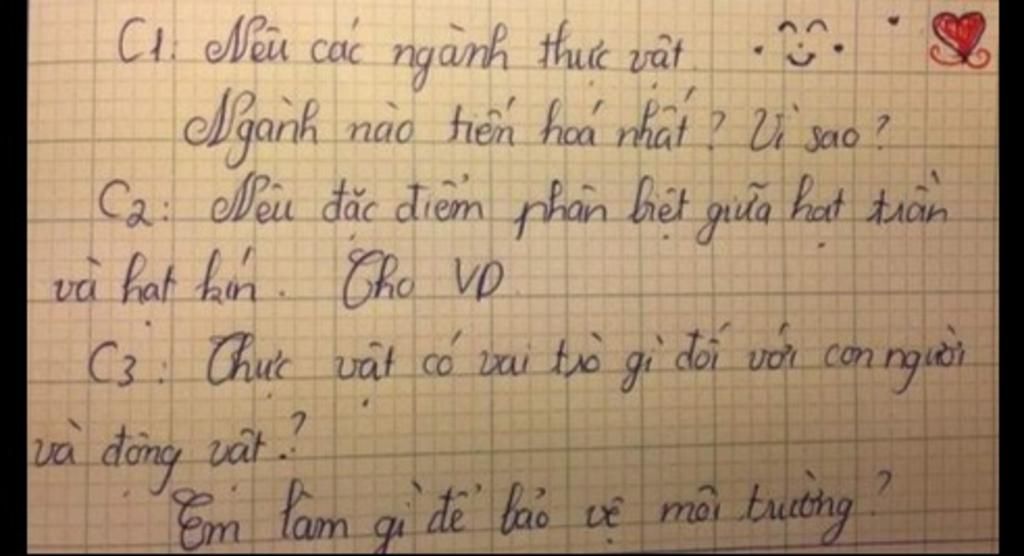 C1: Nêu các ngành thực vật.
Ngành nào tiến hoá nhất? Vì sao?
C2: Nêu đặc điểm phân biệt giữa hạt trần
và hạt kín. Cho VD
C3: Thực vật có vai trò gì đối với con người
và động vật?
Em làm gì để bảo vệ môi trường?